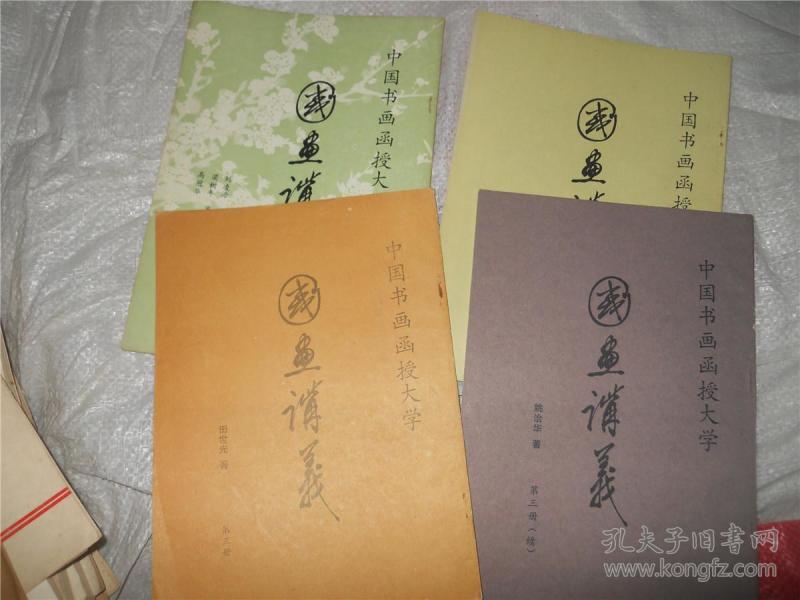 中国书画函授大
國画講
中国书画函授
國画講
中国书画函授大学
國画講義
田世光 著
第三册
中国书画函授大学
國画講義
姚治华 著
第三册(续)
孔夫子旧书网
www.kongfz.com